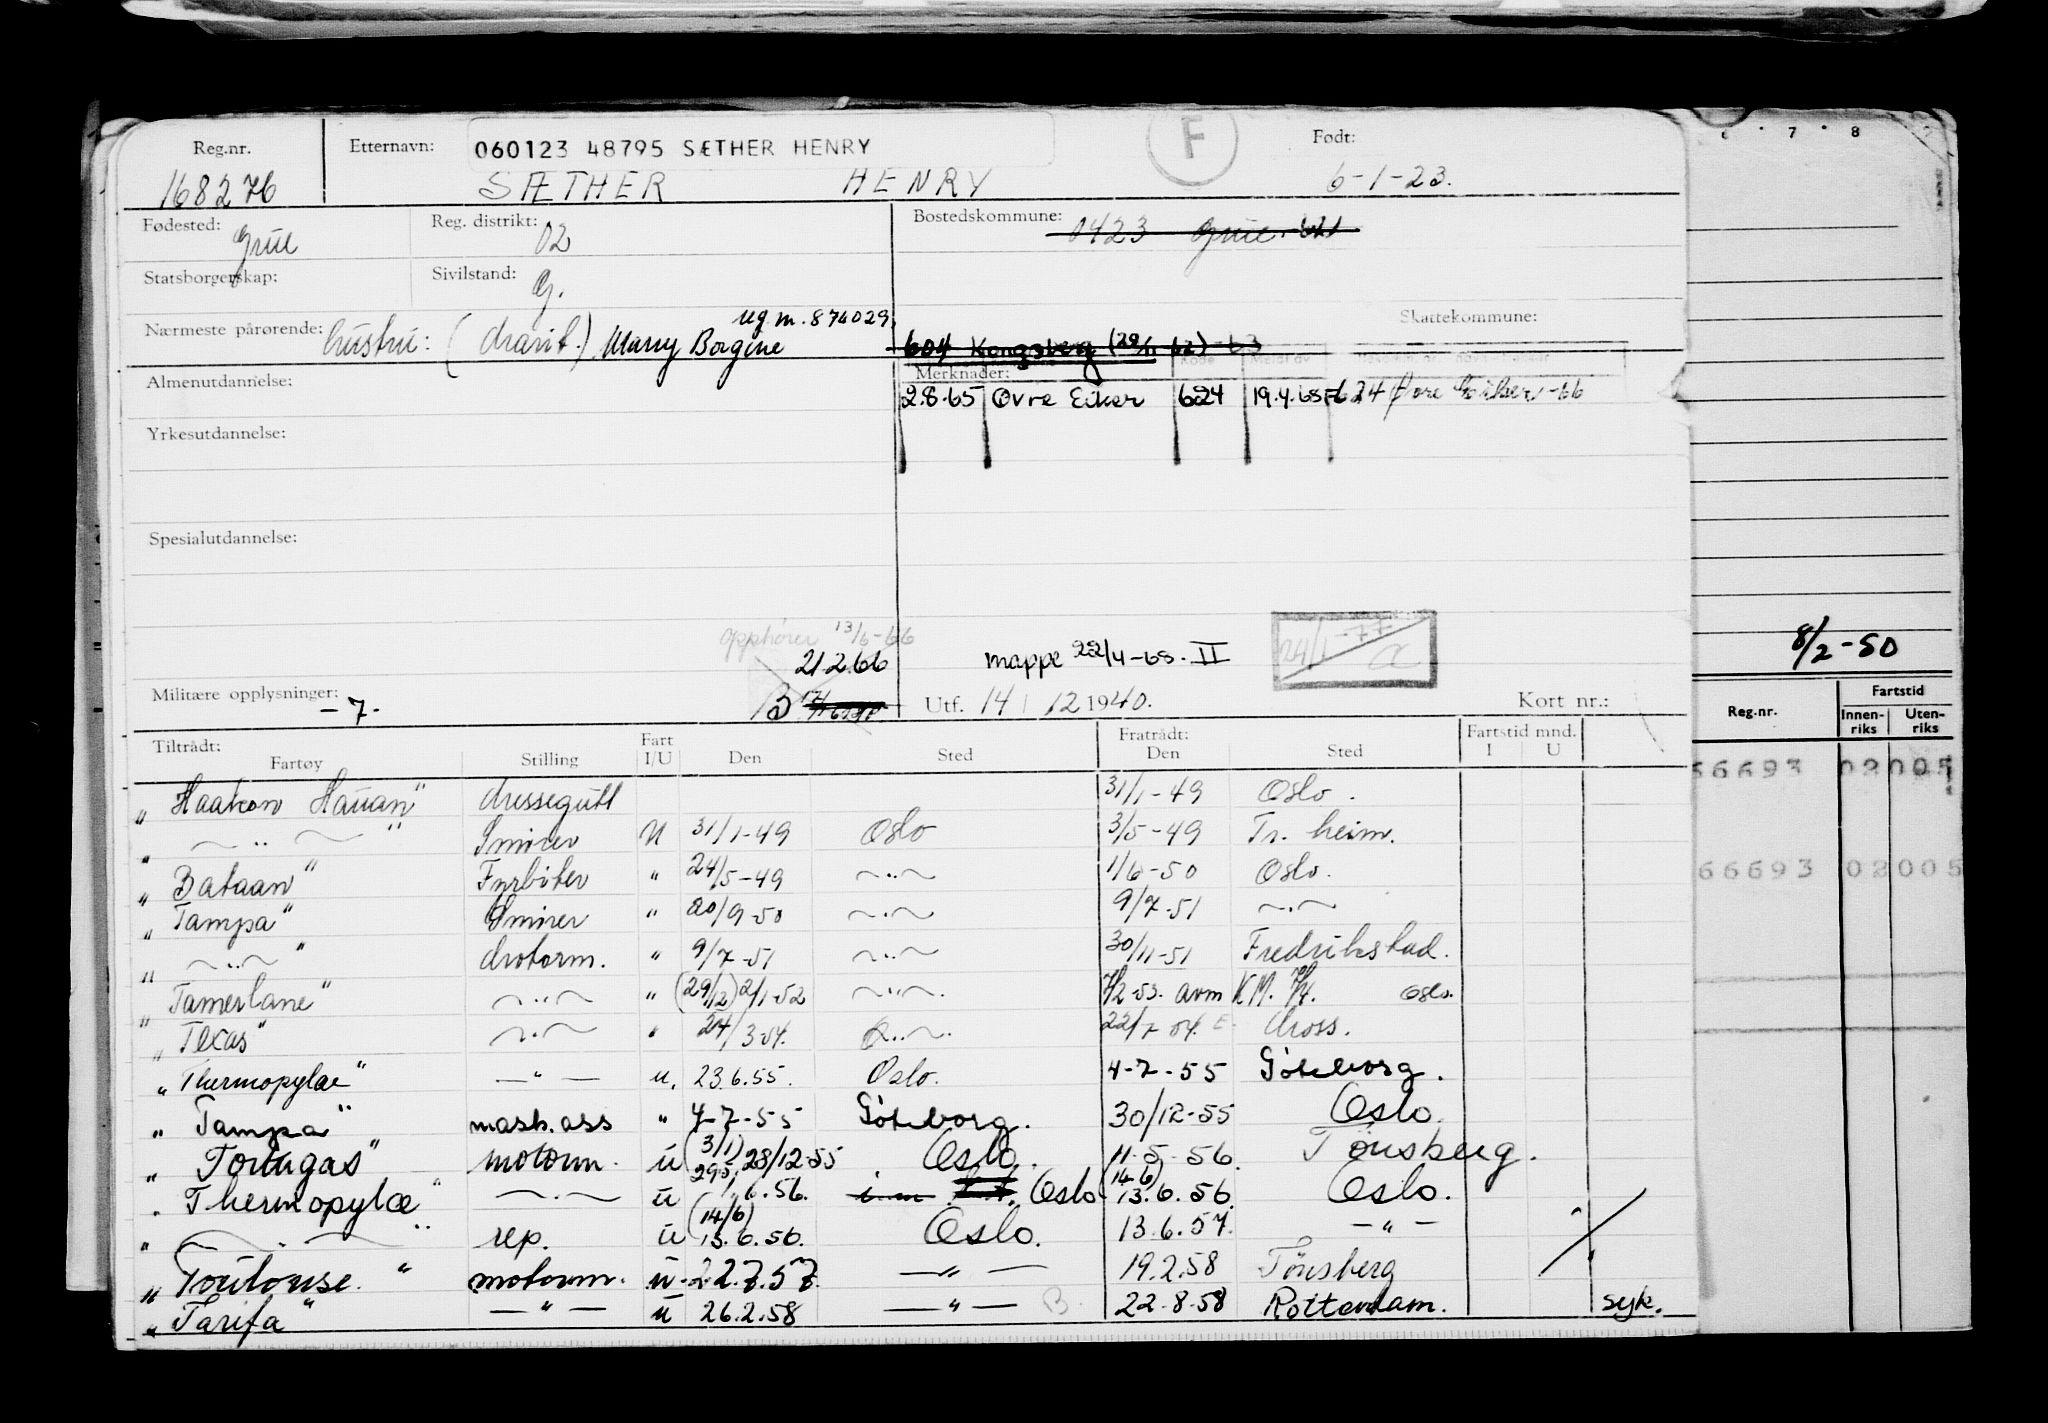 Reg.nr. Etternavn: 060123 48795 SÆTHER HENRY F Født:
168276 SÆTHER HENRY 6-1-23.
Fødested: Grue Reg. distrikt: 02 Bostedskommune: 0423 Grue
Statsborgerskap: Sivilstand: G.
Nærmeste pårørende: hustru: ( ) Mary Borgine ug m. 874029 Skattekommune:
604 Kongsberg (29/11 62) -63
Almenutdannelse: Merknader:
2.8.65 Øvre Eiker 624 19.4.65 624 Øvre Eiker -66
Yrkesutdannelse:
Spesialutdannelse:
opphører 13/6-66
21.2.66 mappe 22/4-65. II 24/1-77 a
8/2-50
Militære opplysninger: -7- B Utf. 14 / 12 1940. Kort nr.:
Tiltrådt: Fart Fratrådt: Fartstid mnd.
Fartøy Stilling I/U Den Sted Den Sted I U
Reg.nr. Fartstid
Innenriks Utenriks
66693 02005
66693 02005
" Haakon Hauan" messegutt 31/1-49 Oslo.
" — " — " Smører U 31/1-49 Oslo 3/5-49 Tr. heim.
" Bataan" Fyrbøter " 24/5-49 — " — 1/6-50 Oslo.
" Tampa" Smører " 20/9-50 — " — 9/7-51 — " —
" — " — " Motorm. " 9/7-51 — " — 30/11-51 Fredrikstad.
" Tamerlane" — " — " (29/12) 2/1-52 — " — 7/2-53. avm KM. Oslo.
" Texas" — " — " 24/3-54. — " — 22/7 54. Moss.
" Thermopylæ" — " — u. 23.6.55. Oslo. 4-7-55 Göteborg.
" Tampa" mask.ass " 4-7-55 Göteborg. 30/12-55 Oslo.
" Tortugas" motorm. u (3/1) 28/12-55 Oslo. 11-5-56. Tönsberg.
" Thermopylæ" — " — u 1.6.56. Oslo (14/6) 13.6.56. Oslo.
" — " — " rep. u (14/6) 13.6.56. Oslo. 13.6.57. — " —
" Toulouse." motorm. u. 2.7.57. — " — 19.2.58 Tönsberg
" Tarifa" — " — u 26.2.58 — " — B. 22.8.58 Rotterdam. syk.